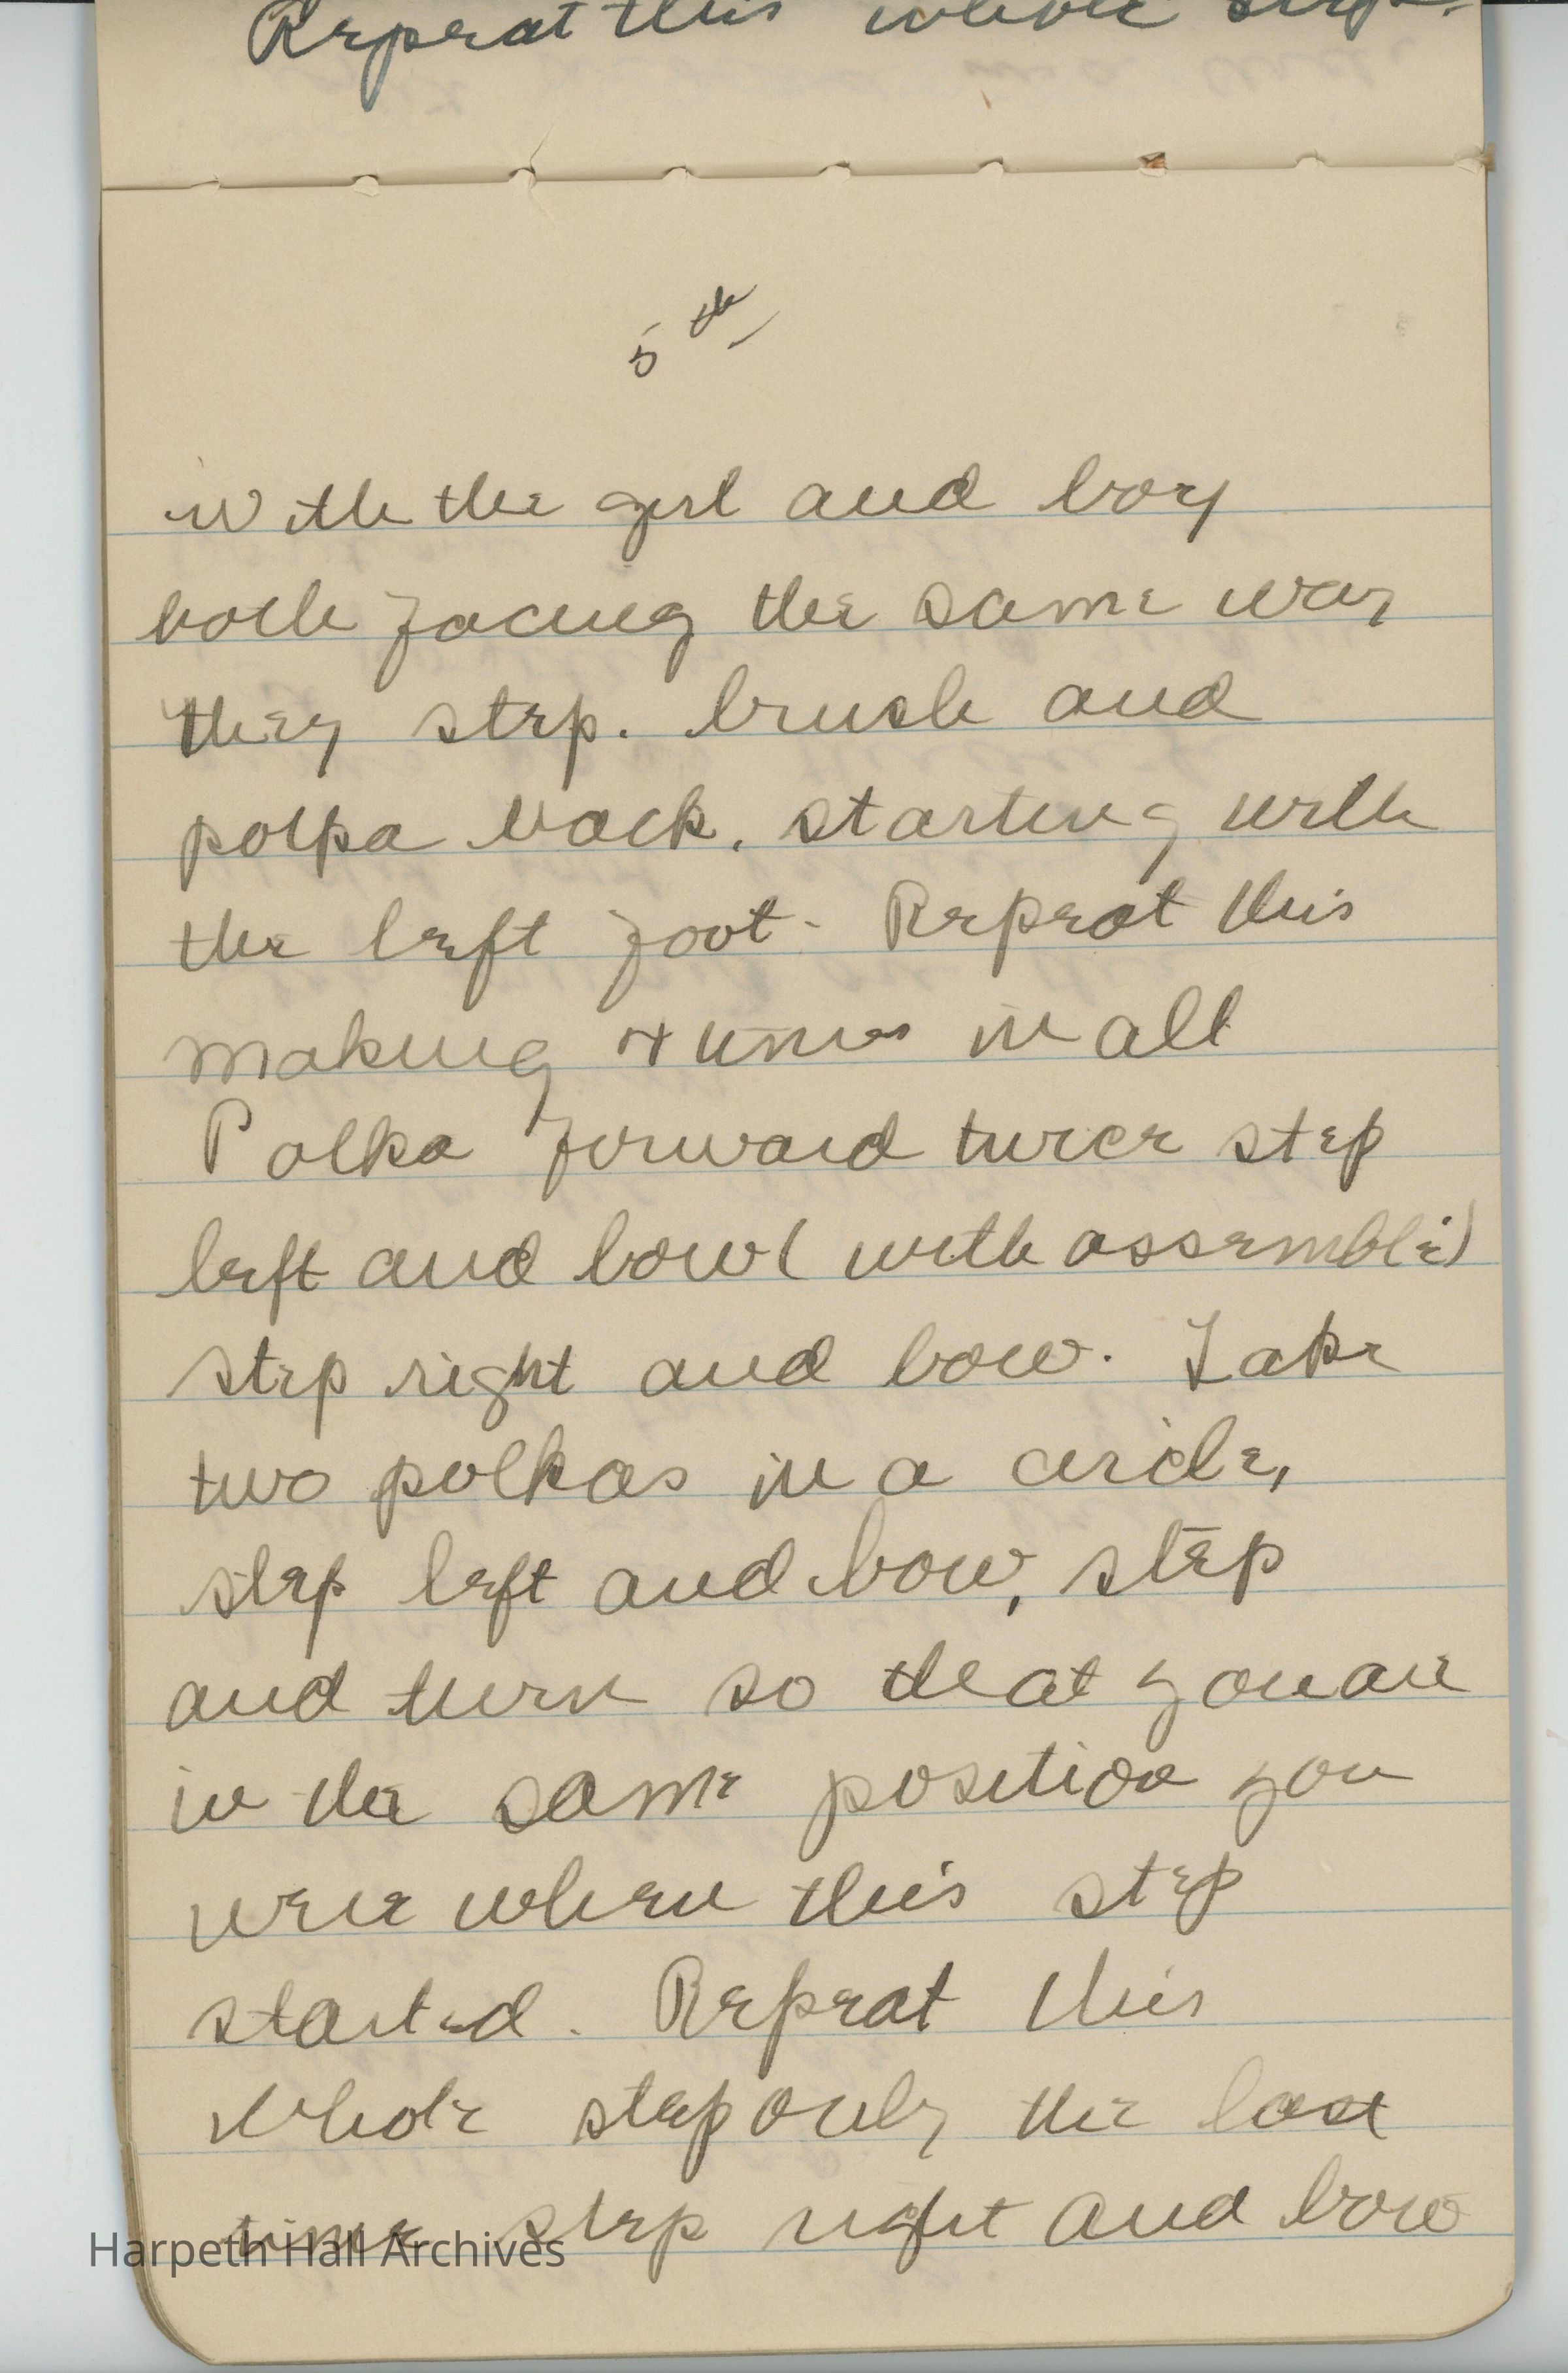 Repeat this whole step.
5th
with the girl and boy
both facing the same way
they step. brush and
polpa back, starting with
the left foot. Repeat this
making 4 times in all
Polka forward twice step
left and bow (with assemblé)
step right and bow. Take
two polkas in a circle,
step left and bow, step
and turn so that you are
in the same position you
were when this step
started. Repeat this
whole step only the last
time step right and bow
Harpeth Hall Archives